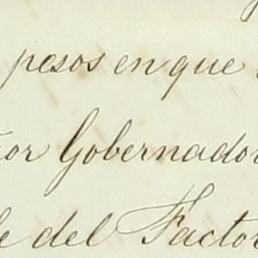 pesos en que
or Gobernador
de del Factor